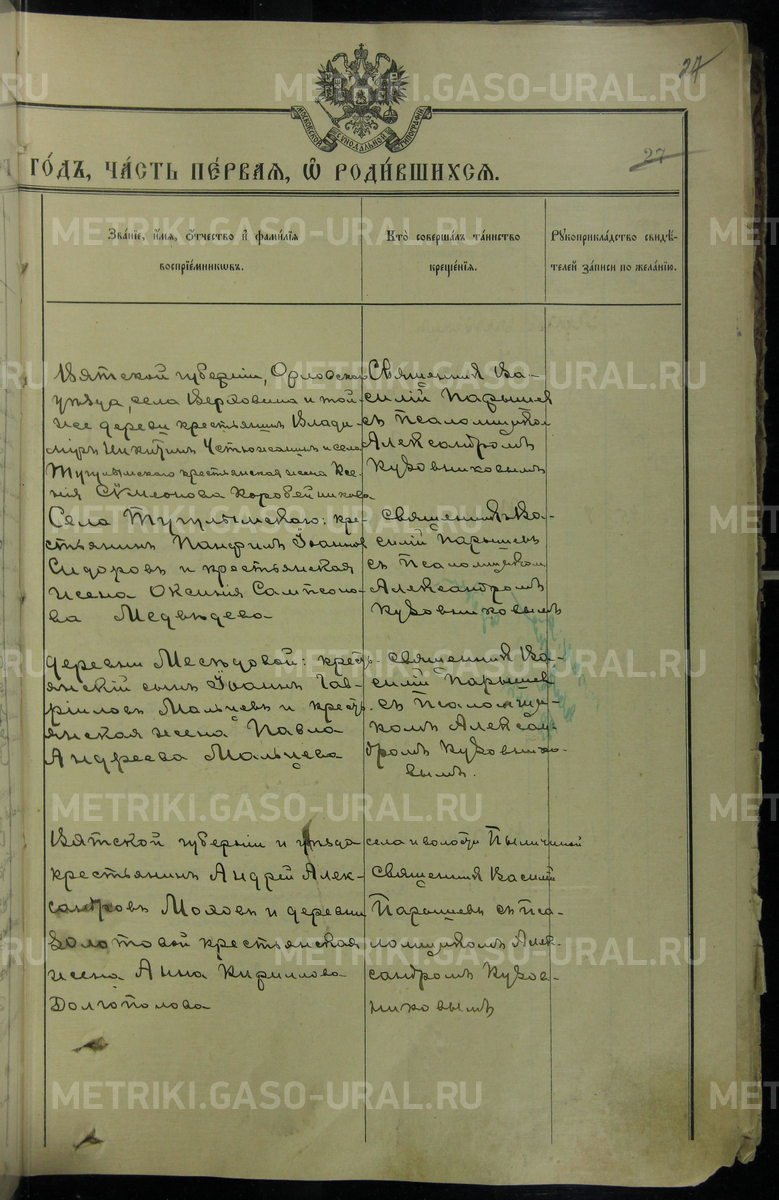 27
27
МОСКОВСКОЙ СУНОДАЛЬНОЙ ТИПОГРАФІИ
ГО́ДЪ, ЧА́СТЬ ПЕ́РВАЯ, Ѡ҆ РОДИ́ВШИХСЯ.
Зва́нїе, и҆́мѧ, ѻ҆́тчество и҆ фами́лїѧ
воспрїе́мникѡвъ.
Кто̀ соверша́лъ та́инство
креще́нїѧ.
Рꙋкоприкла́дство свидѣ́-
телей за́писи по жела́нїю.
Вятской губерніи, Орловскаго
уѣзда, села Верховина и той-
же дереви крестьянинъ Влади-
миръ Никитинъ и села
Тугулымскаго крестьянская жена Ксе-
нія Сѵмеонова Коробейникова
Священникъ Ва-
силій Парышевъ
съ псаломщикомъ
Александромъ
Куховниковымъ
Села Тугулымскаго: кре-
стьянинъ Панфилъ Іоанновъ
Сидоровъ и крестьянская
жена Оксинія Сампсоно-
ва Медвѣдева
священникъ Ва-
силій Парышевъ
съ псаломщикомъ
Александромъ
Куховниковымъ
деревни Месѣдовой: кресть-
янскій сынъ Іоаннъ Гав-
ріиловъ Мальцевъ и кресть-
янская жена Павла
Андреева Мальцева
священникъ Ва-
силій Парышев
съ псаломщи-
комъ Алексан-
дромъ Куховнико-
вымъ.
Вятской губерніи и уѣзда села и волости
крестьянинъ Андрей Алек-
сандровъ Моховъ и деревни
Золотовой крестьянская
жена Анна Кириллова
Долгополова
священникъ Василій
Парышевъ съ пса-
ломщикомъ Алек-
сандромъ Кухов-
никовымъ
METRIKI.GASO-URAL.RU